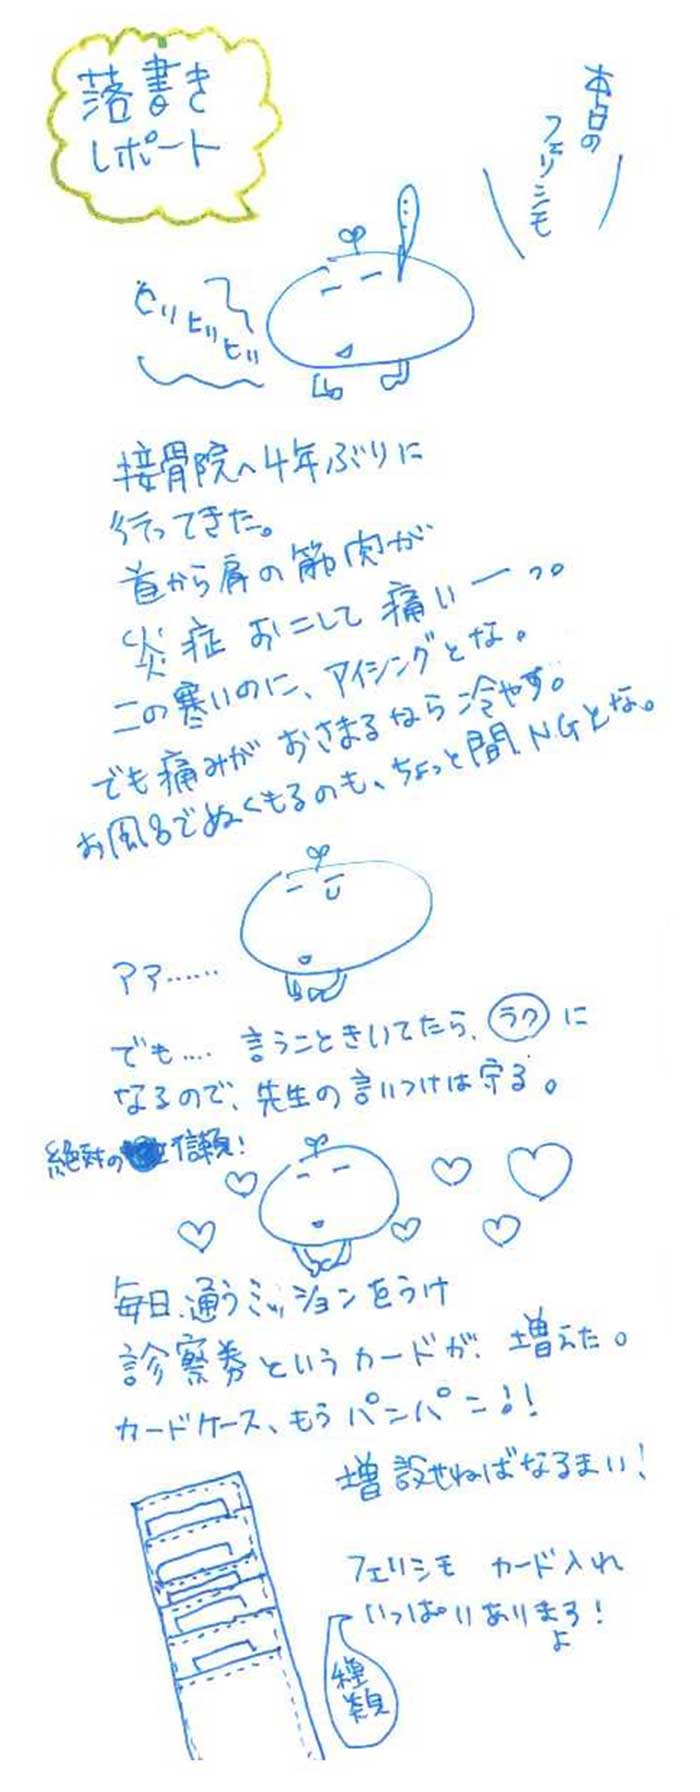 落書き
レポート
本日の
フェリシモ
ピリピリピリ
接骨院へ4年ぶりに
行ってきた。
首から肩の筋肉が
炎症おこして痛いーっ。
この寒いのに、アイシングとな。
でも痛みがおさまるなら冷やす。
お風呂でぬくもるのも、ちょっと間NGとな。
アァ……
でも…. 言うこときいてたら、ラクに
なるので、先生の言いつけは守る。
絶対の信頼!
毎日、通うミッションをうけ
診察券というカードが、増えた。
カードケース、もうパンパン!!
増設せねばなるまい!
フェリシモ カード入れ
いっぱいありまする!
よ
種類